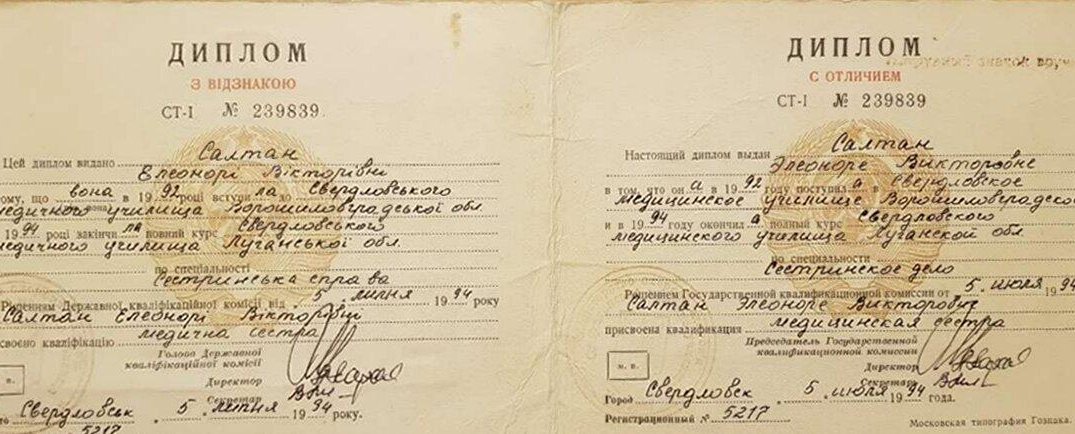 ДИПЛОМ
З ВІДЗНАКОЮ
СТ-I № 239839
Цей диплом видано Салтан
Елеонорі Вікторівні
ому, що вона в 1992 році вступи ла до Свердловського
медичного училища Ворошиловградської обл
1994 році закінчи ла повний курс Свердловського
медичного училища Луганської обл.
по спеціальності
Сестринська справа
Рішенням Державної кваліфікаційної комісії від 5 липня 1994 року
Салтан Елеонорі Вікторівні
своєно кваліфікацію медична сестра
Голова Державної
кваліфікаційної комісії
Директор
Секретар
м. п.
то Свердловськ 5 липня 1994 року.
5217
ДИПЛОМ
значок вруч
С ОТЛИЧИЕМ
СТ-I № 239839
Настоящий диплом выдан Салтан
Элеоноре Викторовне
в том, что он а в 1992 году поступил а в Свердловское
медицинское училище Ворошиловградско
и в 1994 году окончил а полный курс Свердловского
медицинского училища Луганской обл
по специальности
Сестринское дело
Решением Государственной квалификационной комиссии от 5 июля 1994
Салтан Элеоноре Викторовне
присвоена квалификация медицинская сестра
Председатель Государственной
квалификационной комиссии
Директор
Секретарь
м. п.
Город Свердловск 5 июля 1994 года.
Регистрационный № 5217
Московская типография Гознака.